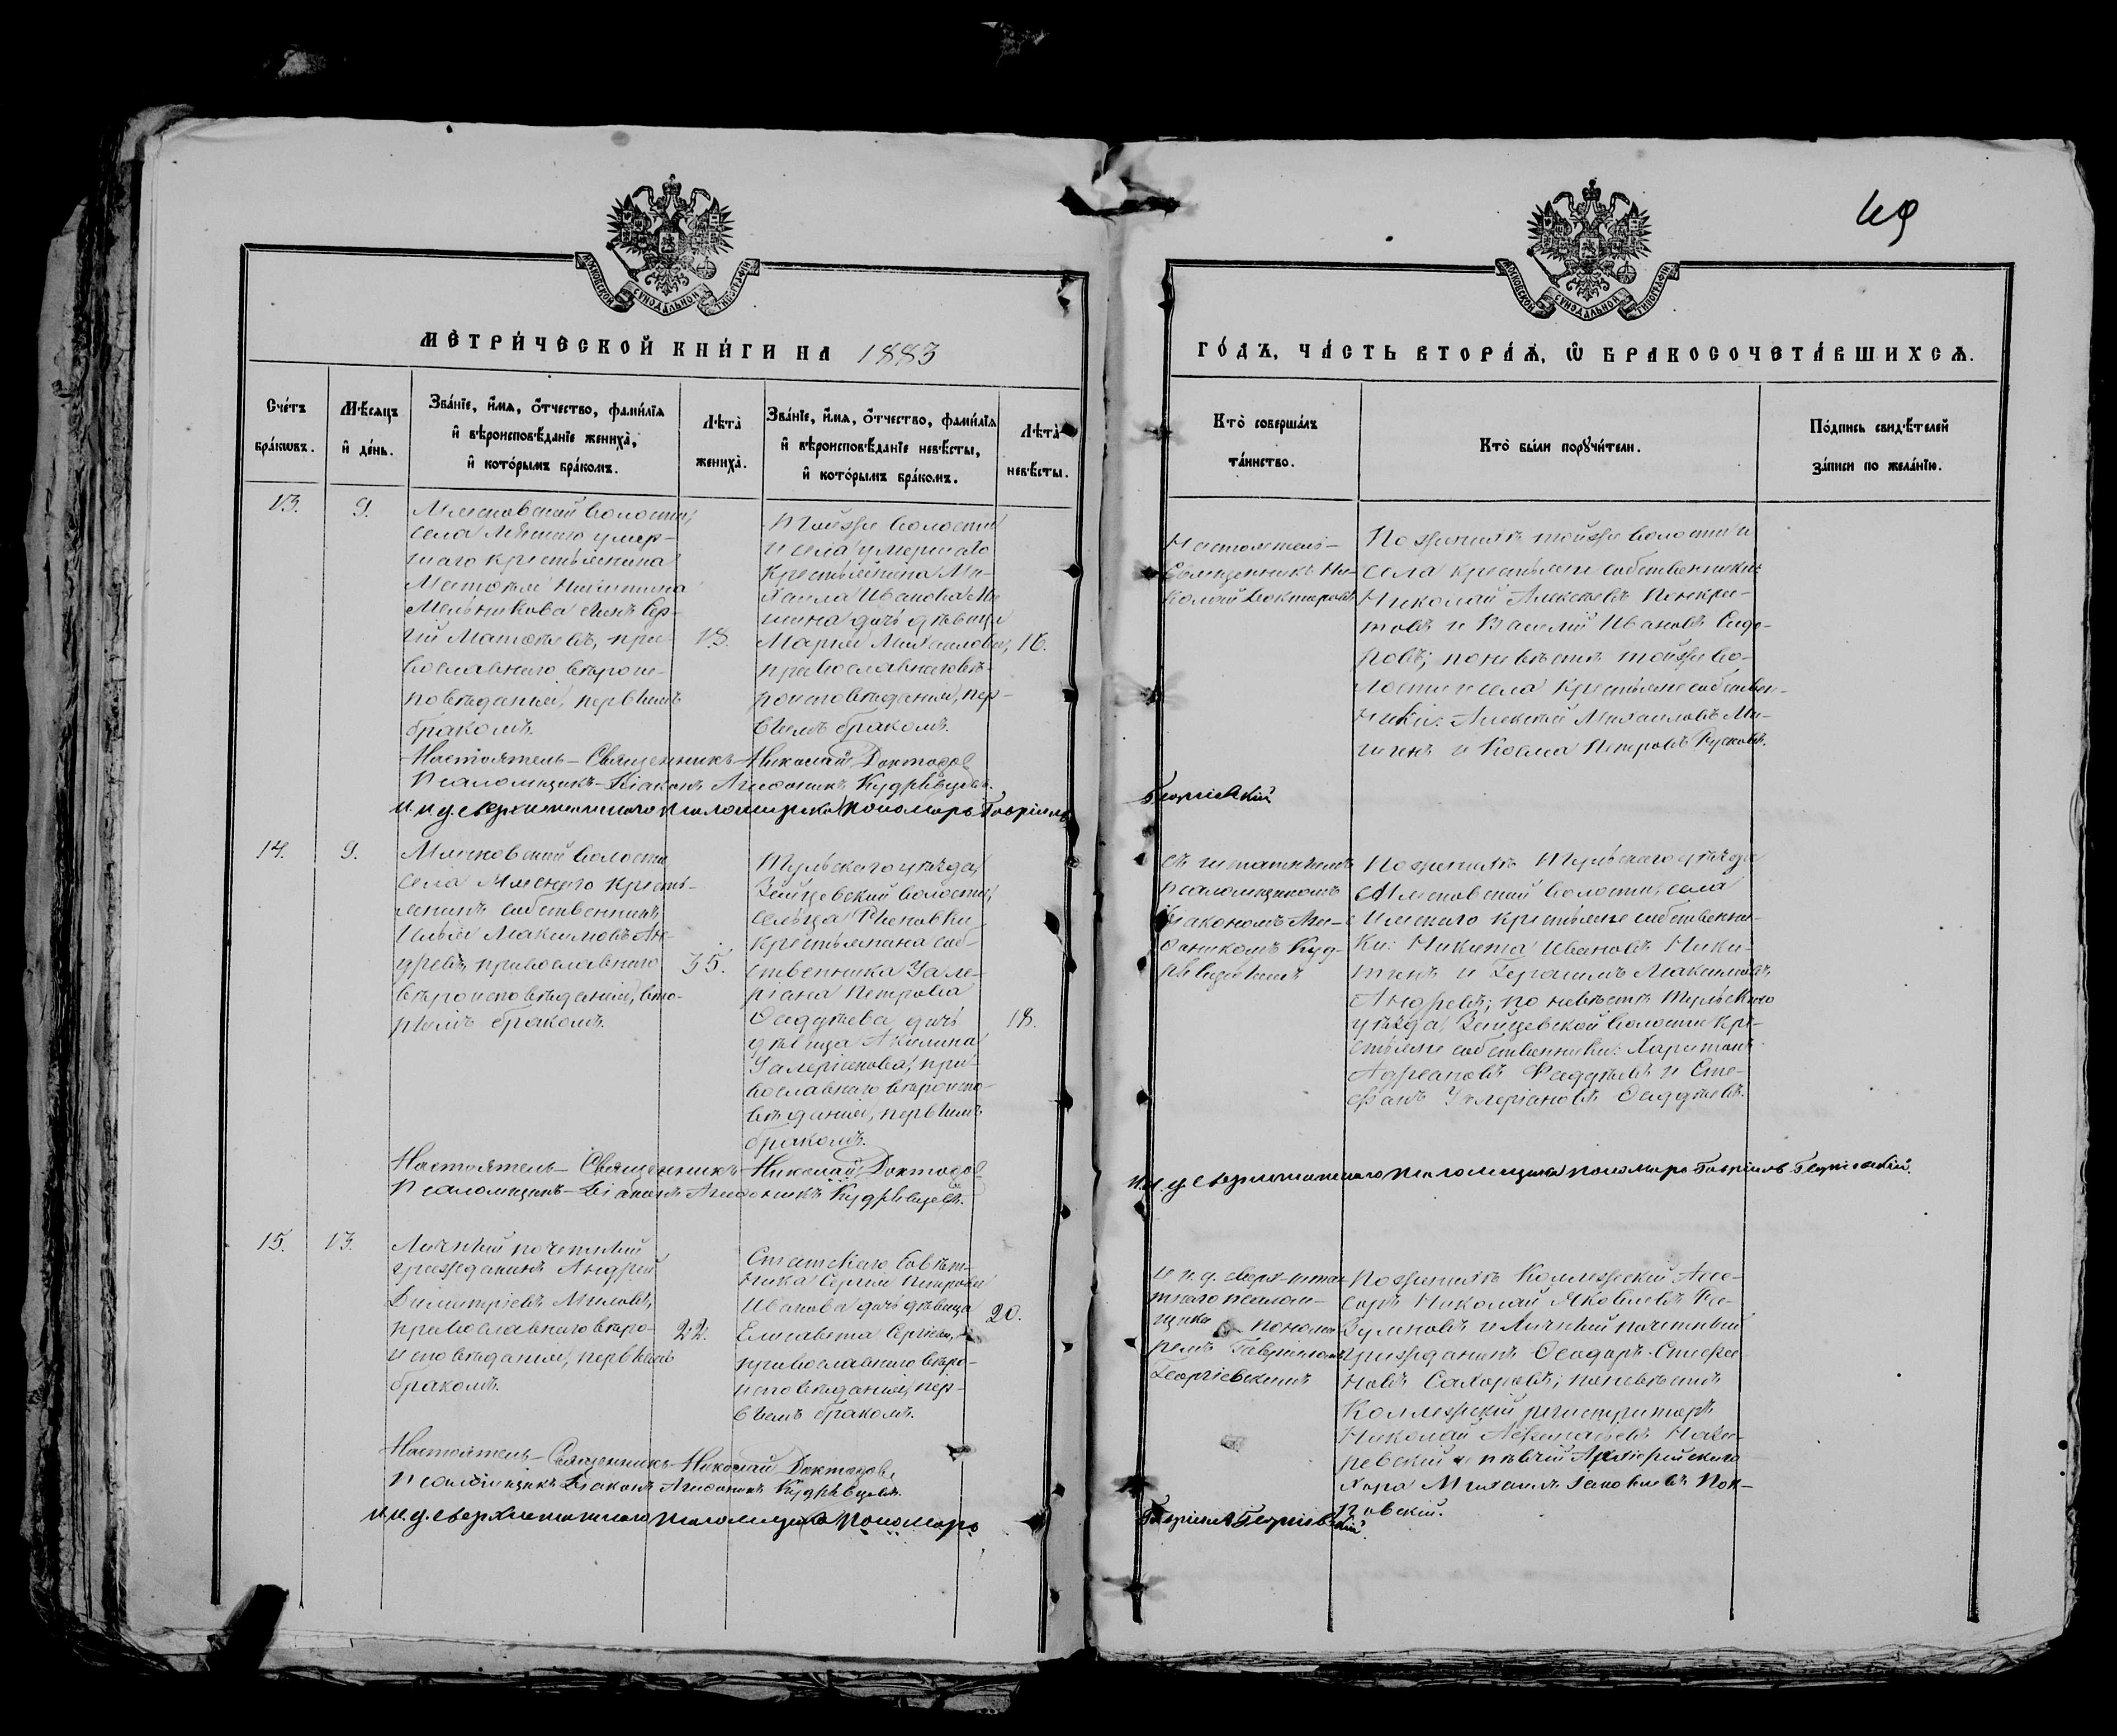 49
МОСКОВСКОЙ СѴНОДАЛЬНОЙ ТИПОГРАФІИ
МОСКОВСКОЙ СѴНОДАЛЬНОЙ ТИПОГРАФІИ
МЕТРИ́ЧЕСКОЙ КНИ́ГИ НА 1883
ГО́ДЪ, ЧА́СТЬ ВТОРА́Ѧ, Ѡ҆ БРАКОСОЧЕТА́ВШИХСѦ.
Сче́тъ
бра́кѡвъ.
Мѣ́сяцъ
и҆ де́нь.
Зва́нїе, и҆́мя, ѻ҆́тчество, фами́лїя
и҆ вѣроисповѣ́данїе жениха̀,
и҆ кото́рымъ бра́комъ.
Лѣ́та̀
жениха̀.
Зва́нїе, и҆́мя, ѻ҆́тчество, фами́лїя
и҆ вѣроисповѣ́данїе невѣ́сты,
и҆ кото́рымъ бра́комъ.
Лѣ́та̀
невѣ́сты.
Кто̀ соверша́лъ
та́инство.
Кто̀ бы́ли порꙋчи́тели.
По́дпись свидѣ́телей
за́писи по жела́нїю.
13.
9.
волости,
села умер-
шаго крестьянина
Никитина
Мельникова сынъ Сер-
гій Матвѣевъ, пра-
вославнаго вѣроис-
повѣданія, первымъ
бракомъ.
18.
Тойже волости
и села умершаго
крестьянина Ми-
хаила Иванова Ми
шина дочь дѣвица
Марія Михаилова,
православнаго вѣ-
роисповѣданія, пер-
вымъ бракомъ.
16.
Настоятель-
Священникъ Ни-
колай Доктаровъ
По женихѣ тойже волости и
села крестьяне собственники:
Николай Алексѣевъ
и Василій Ивановъ Сидо-
ровъ; по невѣстѣ тойже во-
лости и села крестьяне собствен-
ники: Алексѣй Михаиловъ Ми-
шинъ и Косма Петровъ
Настоятель-Священникъ Николай Доктаровъ
Псаломщикъ-Діаконъ Кудрявцевъ.
И. д. сверхштатнаго псаломщика Пономарь Гавріилъ
Георгіевскій
14.
9.
волости
села кресть-
янинъ собственникъ
Илья Максимовъ Ан-
дреевъ православнаго
вѣроисповѣданія, вто-
рымъ бракомъ.
35.
Тульскаго уѣзда,
Зайцевской волости,
сельца
крестьянина соб-
ственника Уале-
ріана Петрова
Ѳаддѣева дочь
дѣвица Акилина
Уалеріанова, пра-
вославнаго вѣроиспо-
вѣданія, первымъ
бракомъ.
18.
съ штатнымъ
псаломщикомъ
Діакономъ
Куд-
рявцевымъ
По женихѣ Тульскаго уѣзда
волости, села
крестьяне собственни-
ки: Никита Ивановъ Ники-
тинъ и Герасимъ Максимовъ
Андреевъ; по невѣстѣ Тульскаго
уѣзда, Зайцевской волости кре-
стьяне собственники: Харитонъ
Адріановъ Ѳаддѣевъ и Сте-
фанъ Уалеріановъ Ѳаддѣевъ.
Настоятель-Священникъ Николай Доктаровъ
Псаломщикъ-Діаконъ Кудрявцевъ.
И. д. сверхштатнаго псаломщика пономарь Гавріилъ Георгіевскій.
15.
13.
Личный почетный
гражданинъ Андрей
Димитріевъ Миловъ,
православнаго вѣро-
исповѣданія, первымъ
бракомъ.
22.
Статскаго Совѣт-
ника Сергія Петрова
Иванова дочь дѣвица
Елисавета Сергіева,
православнаго вѣро-
исповѣданія, пер-
вымъ бракомъ.
20.
и и. д. сверх-штат-
тнаго псалом-
щика понома-
ремъ Гавріиломъ
Георгіевскимъ
По женихѣ Коллежскій Ассе-
соръ Николай Яковлевъ Ра-
зумовъ и Личный почетный
гражданинъ Ѳеодоръ Стефа-
новъ Сахаровъ; по невѣстѣ
Коллежскій регистраторъ
Николай
и пѣвчій Архіерейскаго
хора Михаилъ Іаковлевъ Пок-
ровскій.
Настоятель-Священникъ Николай Доктаровъ
Псаломщикъ Діаконъ Кудрявцевъ.
И. д. сверхштатнаго псаломщика Пономарь
Гавріилъ Георгіевскій.